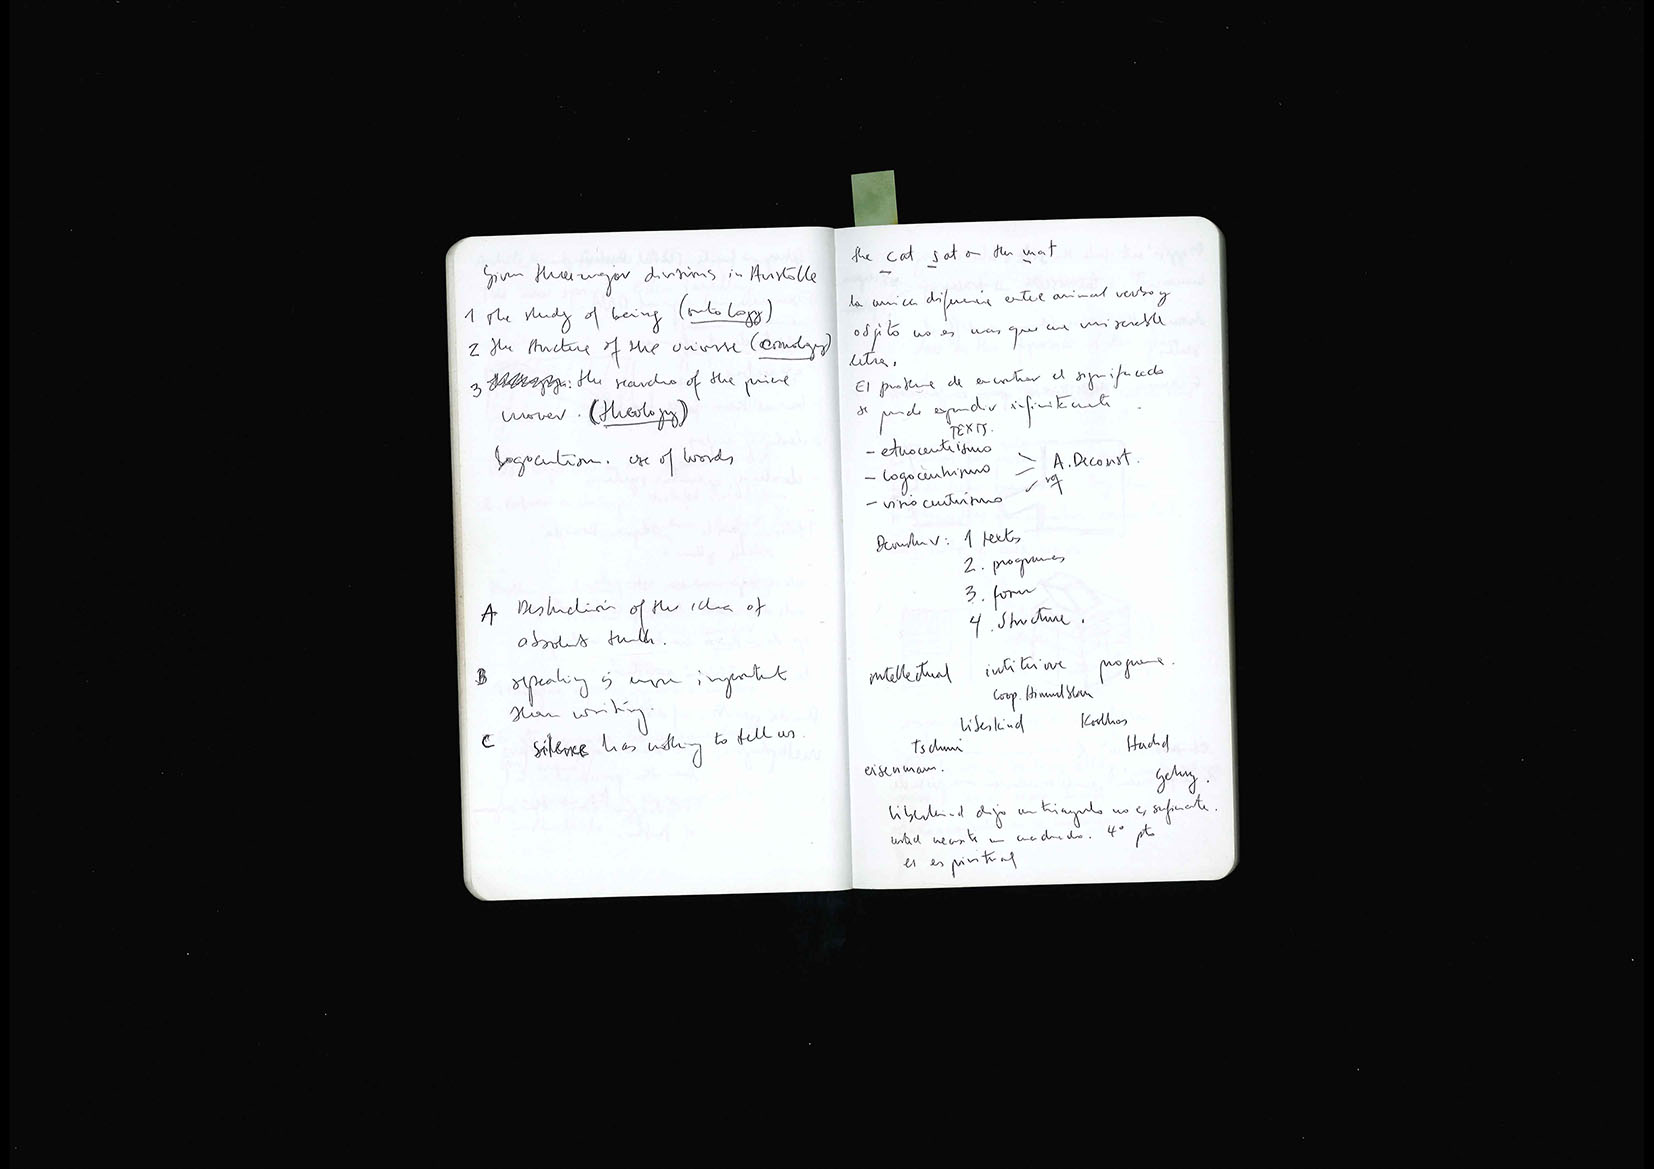 Given three major divisions in Aristotle
1 the study of being (ontology)
2 the structure of the universe (cosmology)
3 : the search of the prime
mover. (theology)
Logocentrism. use of words
A Destruction of the idea of
absolut truth.
B speaking is more important
than writing.
C silence has nothing to tell us.
the cat sat on the mat
la unica diferencia entre animal verbo y
objeto no es mas que una miserable
letra.
El problema de encontrar el significado
se puede expandir infinitamente.
TEXTS.
- etnocentrismo
- logocentrismo
A. Deconst.
- visiocentrismo
Deconstruir: 1 textos
2. programas
3. form
4. structure.
intellectual intuitive programa.
Coop. Himmelblau
Libeskind Koolhas
Tschumi Hadid
eisenmann.
Gehry.
Libeskind dijo un triangulo no es suficiente.
usted necesita un cuadrado. 4º pto
el espiritual